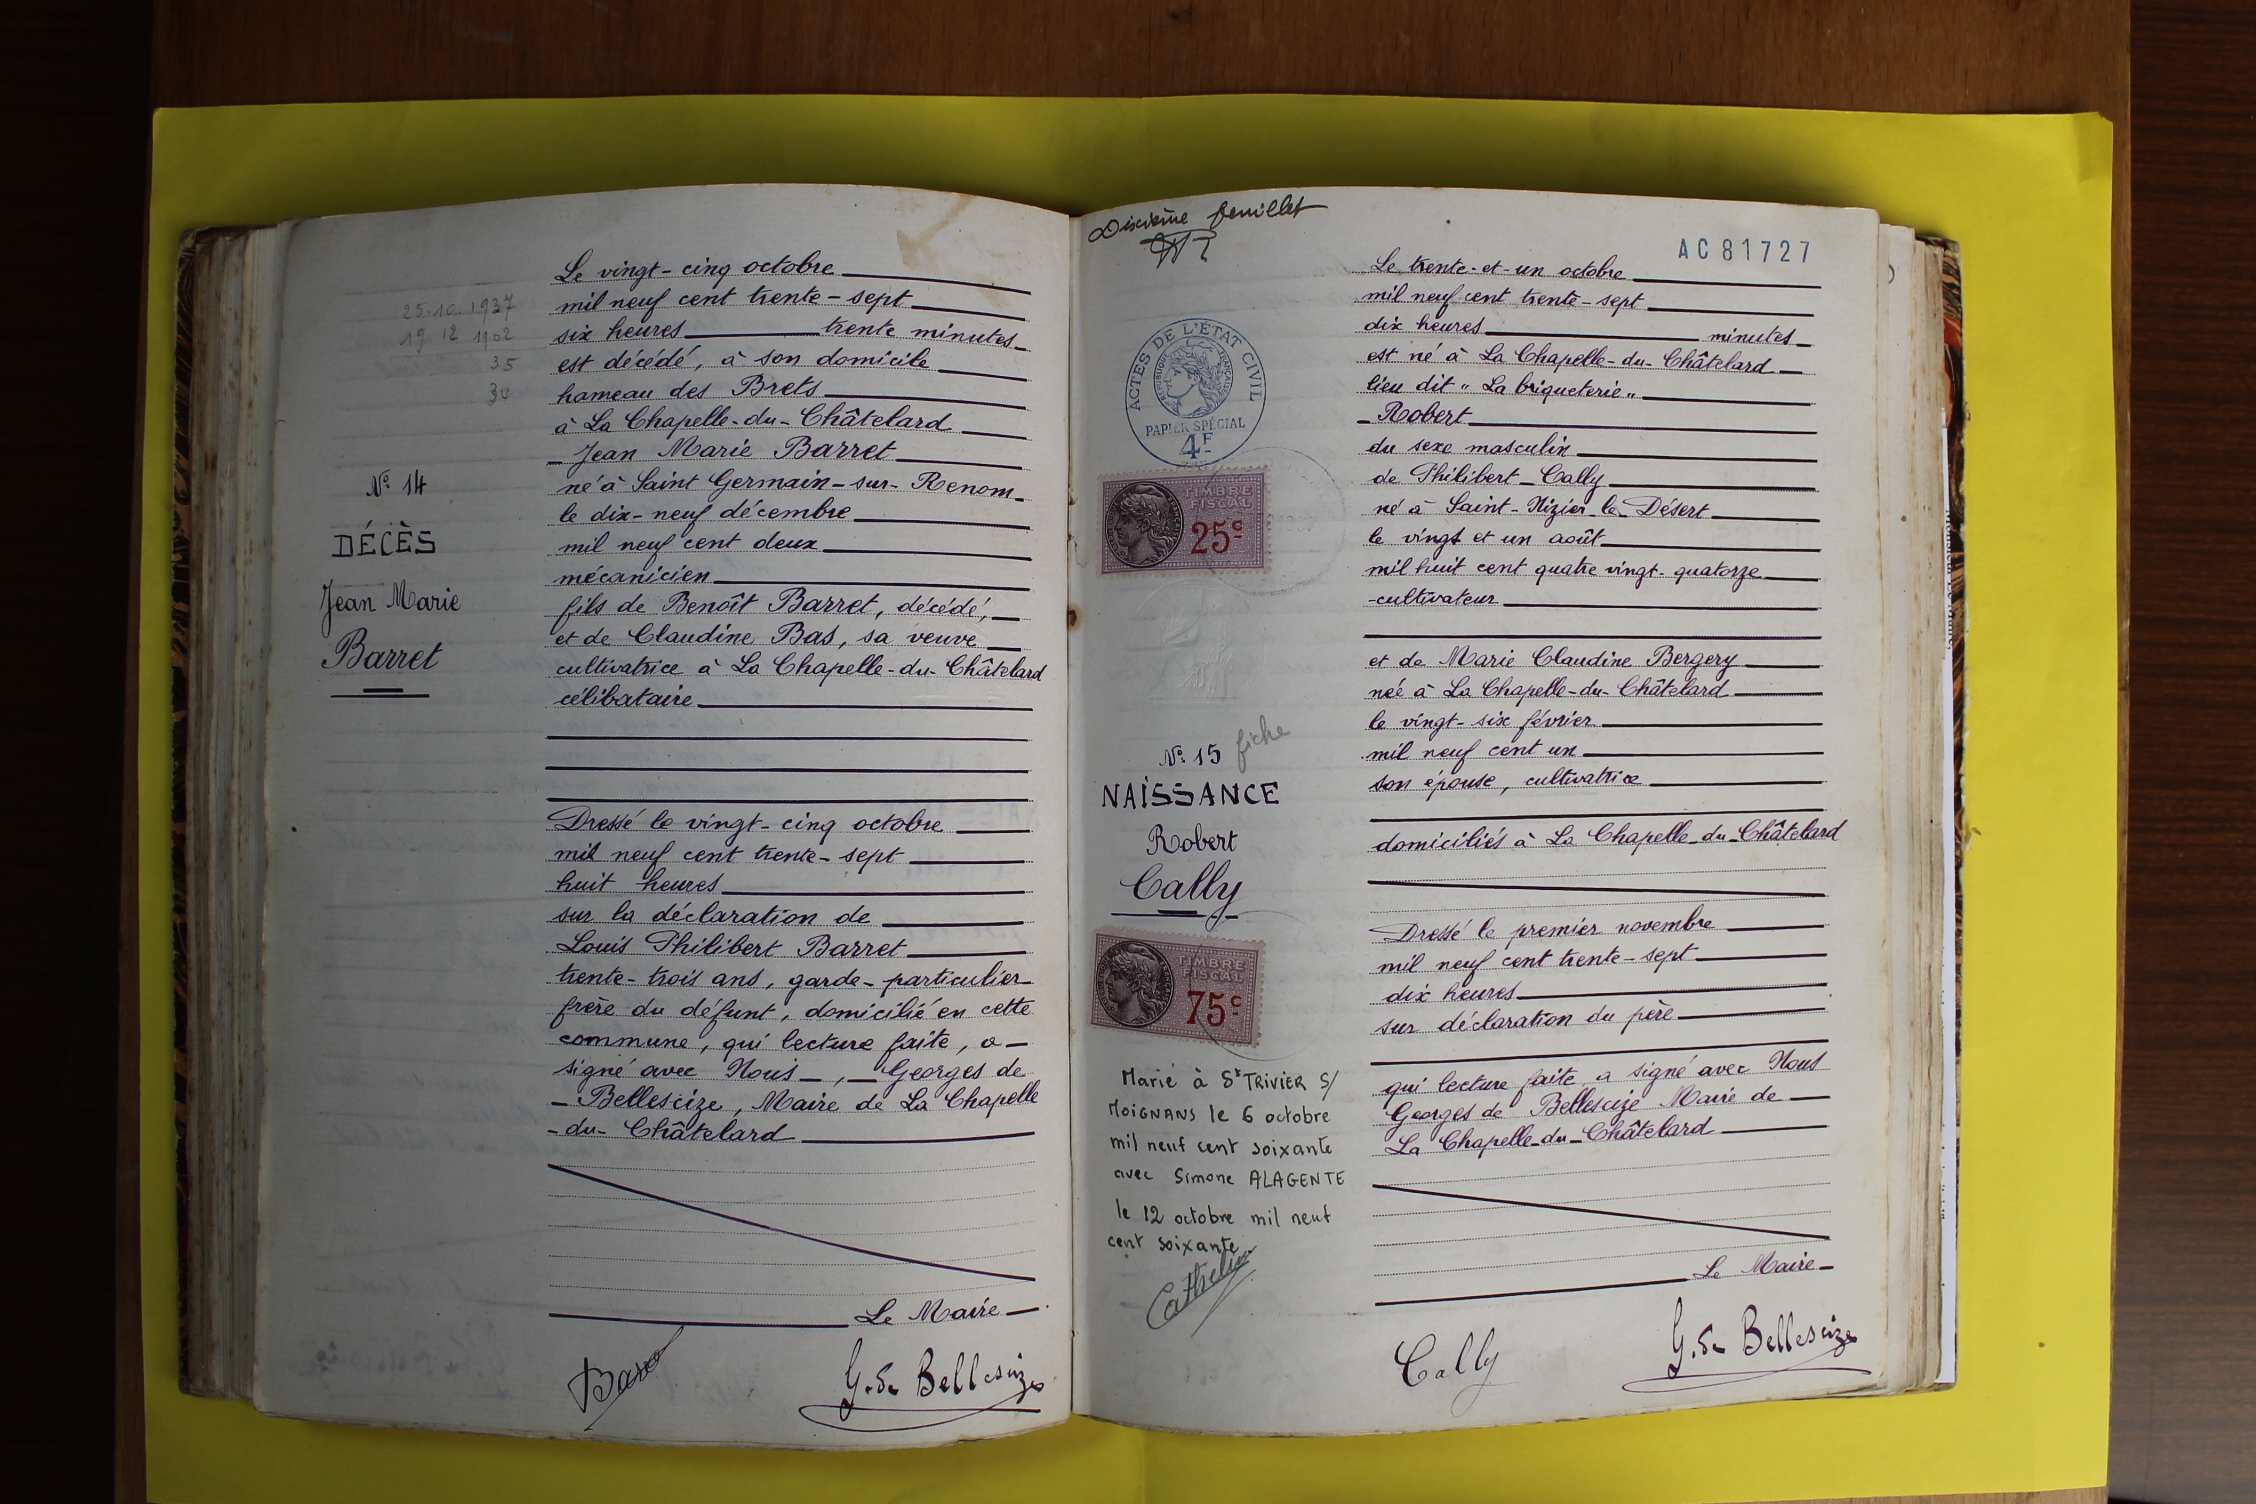 25.10.1937
19 12 1902
35
30
N° 14
DÉCÈS
Jean Marie
Barret
Le vingt-cinq octobre
mil neuf cent trente-sept
six heures trente minutes
est décédé, à son domicile
hameau des Brets
à La Chapelle-du-Châtelard
Jean Marie Barret
né à Saint Germain-sur-Renom
le dix-neuf décembre
mil neuf cent deux
mécanicien
fils de Benoît Barret, décédé,
et de Claudine Bas, sa veuve
cultivatrice à La Chapelle-du-Châtelard
célibataire
Dressé le vingt-cinq octobre
mil neuf cent trente-sept
huit heures
sur la déclaration de
Louis Philibert Barret
trente-trois ans, garde-particulier
frère du défunt, domicilié en cette
commune, qui lecture faite, a
signé avec Nous, Georges de
Bellescize, Maire de La Chapelle
-du-Châtelard
Le Maire
G. de Bellescize
Dixième feuillet
ACTES DE L'ÉTAT CIVIL
RÉPUBLIQUE FRANÇAISE
PAPIER SPÉCIAL
4F
TIMBRE
FISCAL
25c
N° 15 fiche
NAISSANCE
Robert
Cally
TIMBRE
FISCAL
75c
Marié à St TRIVIER S/
MOIGNANS le 6 octobre
mil neuf cent soixante
avec Simone ALAGENTE
le 12 octobre mil neuf
cent soixante
AC 81727
Le trente-et-un octobre
mil neuf cent trente-sept
dix heures minutes
est né à La Chapelle-du-Châtelard
lieu dit "La briqueterie"
Robert
du sexe masculin
de Philibert Cally
né à Saint-Nizier-le-Désert
le vingt et un août
mil huit cent quatre vingt-quatorze
cultivateur
et de Marie Claudine Bergery
née à La Chapelle-du-Châtelard
le vingt-six février
mil neuf cent un
son épouse, cultivatrice
domiciliés à La Chapelle-du-Châtelard
Dressé le premier novembre
mil neuf cent trente-sept
dix heures
sur déclaration du père
qui lecture faite a signé avec Nous
Georges de Bellescize Maire de
La Chapelle-du-Châtelard
Le Maire
Cally
G. de Bellescize